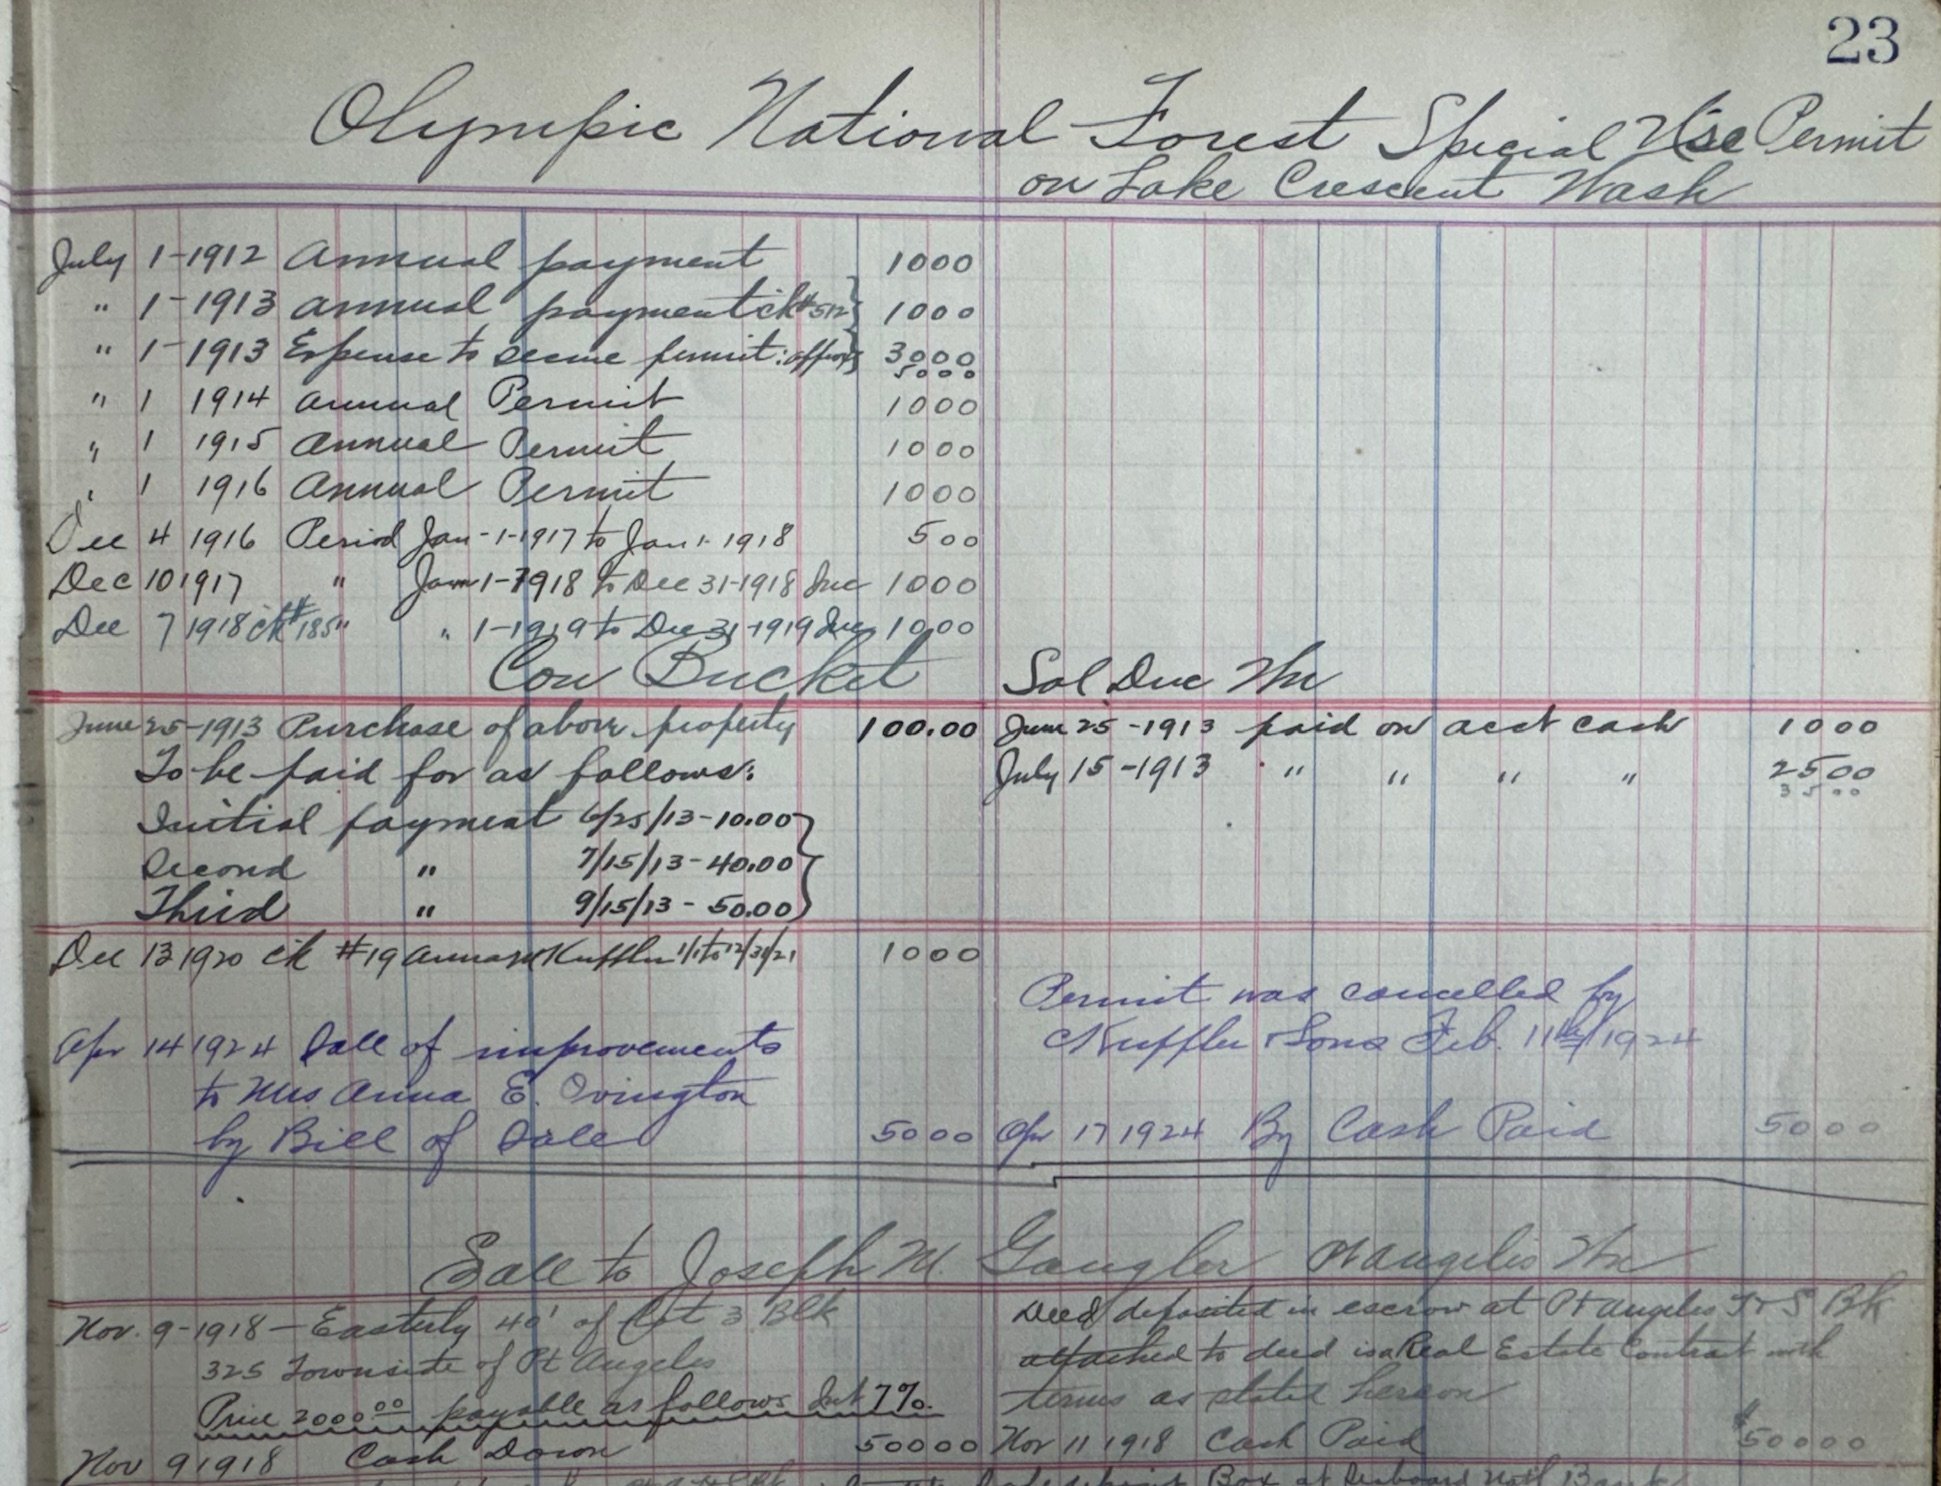 23
Olympic National Forest Special Use Permit
on Lake Crescent Wash
July 1-1912 Annual payment 1000
" 1-1913 Annual payment ck #512 1000
" 1-1913 Expense to secure permit: 3000
5000
" 1 1914 Annual Permit 1000
" 1 1915 Annual Permit 1000
" 1 1916 Annual Permit 1000
Dec 4 1916 Period Jan-1-1917 to Jan 1-1918 500
Dec 10 1917 " Jan 1-1918 to Dec 31-1918 Inc 1000
Dec 7 1918 ck #185 " " 1-1919 to Dec 31-1919 Inc 1000
Cow Bucket Sol Duc Wn
June 25-1913 Purchase of above property 100.00 June 25-1913 paid on acct cash 1000
To be paid for as follows: July 15-1913 " " " " 2500
3500
Initial payment 6/25/13-10.00
Second " 7/15/13-40.00
Third " 9/15/13-50.00
Dec 13 1920 ck #19 Anna M Kuffler 1/1 to 12/31/21 1000
Permit was cancelled by
Kuffler & Sons Feb. 11th/1924
Apr 14 1924 Sale of improvements
to Mrs Anna E. Ovington
by Bill of Sale 5000 Apr 17 1924 By Cash Paid 5000
Sale to Joseph M. Gangler Pt Angeles Wn
Nov. 9-1918-Easterly 40' of Lot 3 Blk Deed deposited in escrow at Pt Angeles T & S Bk
325 Townsite of Pt Angeles attached to deed is a Real Estate Contract with
Price 2000.00 payable as follows Int 7%. terms as stated hereon
Nov 9 1918 Cash Down 50000 Nov 11 1918 Cash Paid $50000
Box at Seaboard Natl Bank